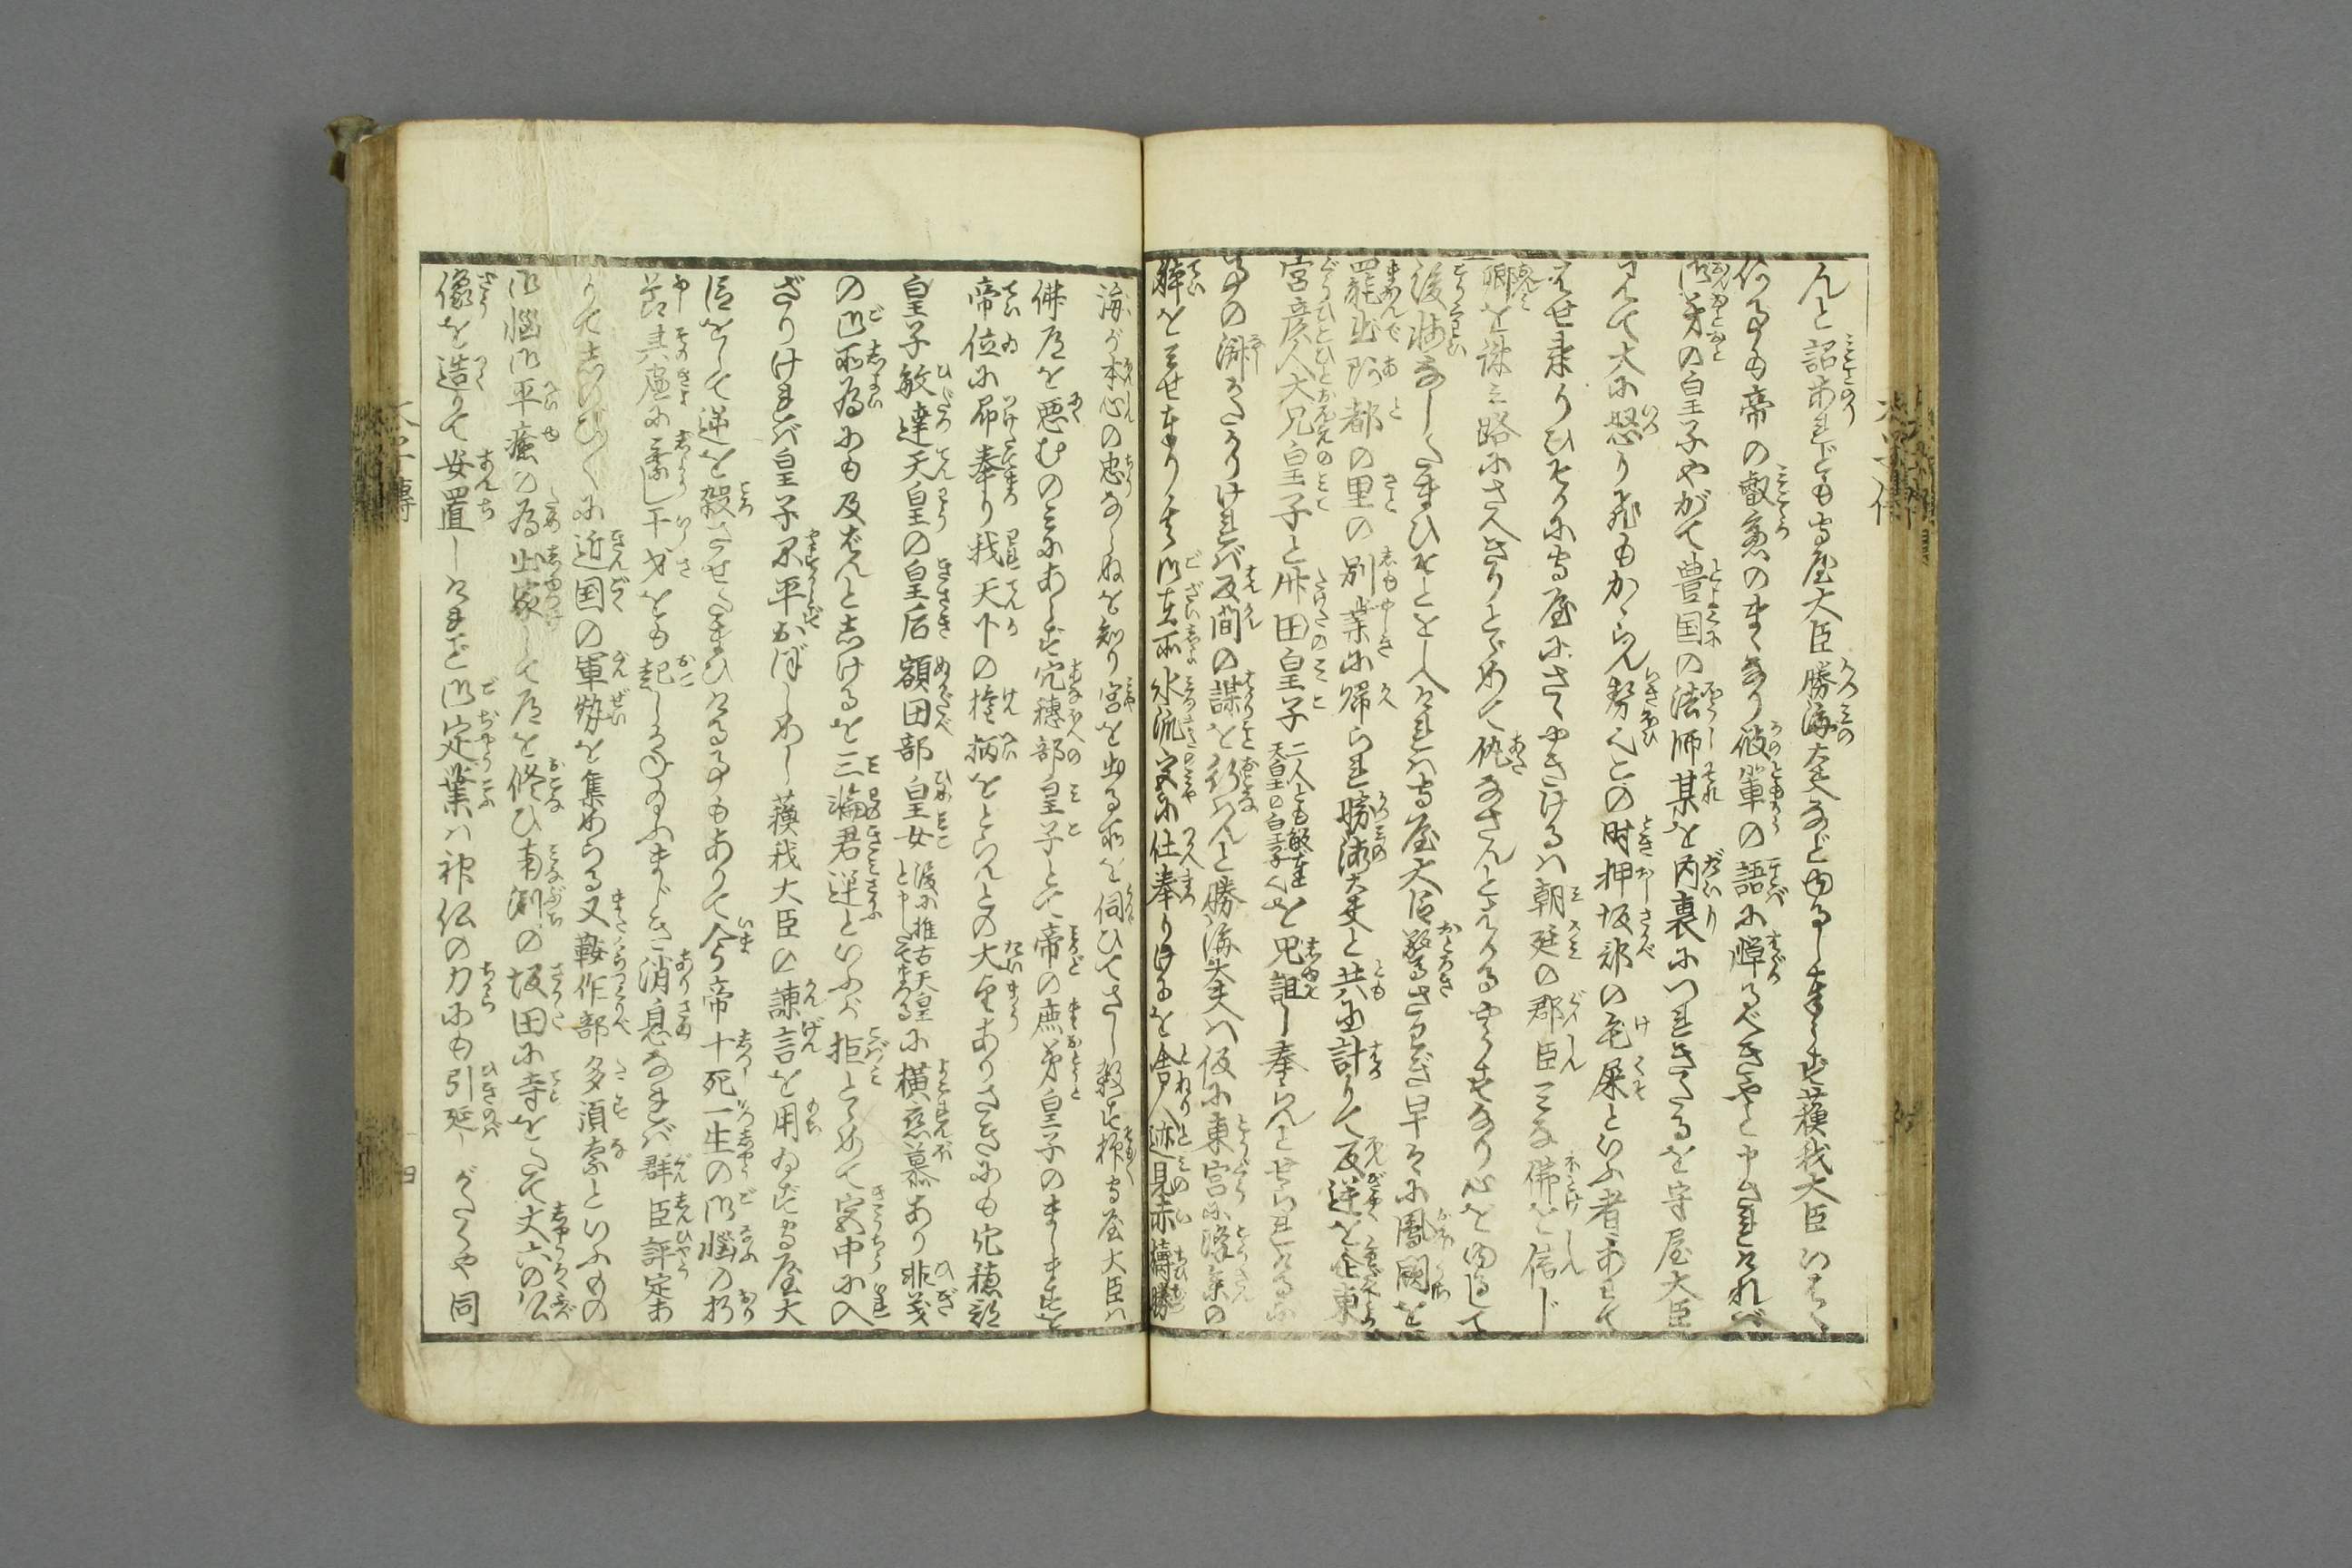 んと詔あれども守屋大臣勝海大夫などゆるし奉らず蘇我大臣いはく
何事も帝の叡慮のまゝなり彼輩の語に憚るべきやと申されければ
御弟の皇子やがて豊国の法師某を内裏にいれきたるを守屋大臣
見て大に怒り飛もかゝらん勢ひの時押坂部の毛屎といふ者あはて
はせ来りひそかに守屋にさゝやきけるは朝廷の郡臣みな佛を信じ
卿を謀る路にさへぎりとゞめて仇なさんと
後悔なしたまひそと入ければ守屋大臣驚きさわぎ早々に鳳闕を
罷出阿都の里の別業に帰られ勝海大夫と共に計りて反逆を企東
宮彦人大兄皇子と竹田皇子二人とも敏達天皇の皇子也を咒詛し奉らんとせられけるに
事の渕がたかりければ反間の謀を行はんと勝海大夫は仮に東宮に降参の
躰を見せ奉りて御在所水流宮に仕奉りけるを舎人迹見赤檮勝
海が本心の忠ならぬを知り宮を出る所を伺ひてさし殺せ物守屋大臣は
佛道を悪むのみにあらず穴穂部皇子とて帝の庶弟皇子のましますを
帝位に即奉り我天下の権柄をとらんとの大望ありさきにも穴穂部
皇子敏達天皇の皇后額田部皇女後に推古天皇と申したてまつるに横恋慕あり非義
の御所為にも及ばんとしけるを三輪君逆といふが拒とゞめて宮中に入
ざりければ皇子不平おぼしめし蘇我大臣の諫言を用ゐず守屋大
臣をして逆を殺させたまひける事もありて今帝十死一生の御悩の折
節其虚に乗し干戈をも起しかねまじき消息なれば群臣評定あ
りてしのび〳〵に近国の軍勢を集めらる又鞍作部多須奈といふもの
御悩御平癒の為出家して道を修ひ南渕の坂田に寺をたて丈六の仏
像を造りて安置しけれど御定業は神仏の力にも引延しがたくや同